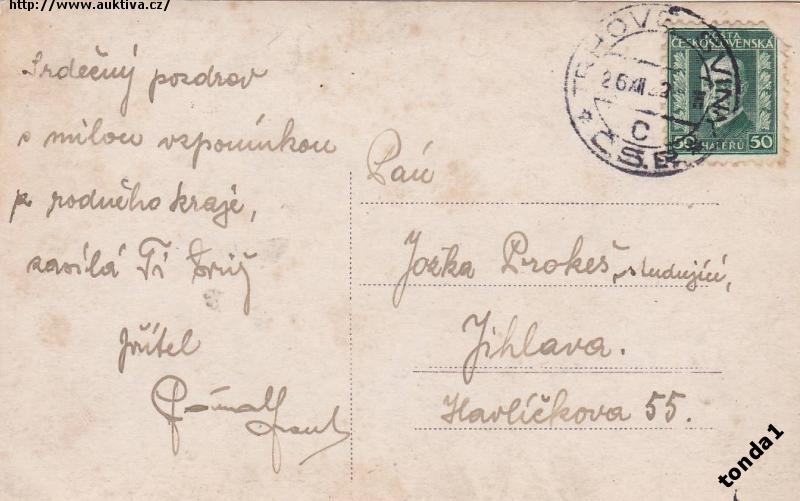 http://www.auktiva.cz/
Srdečný pozdrav
s milou vzpomínkou
z rodného kraje,
zasílá Ti Tvůj
přítel
TRHOVÉ SVINY
26.XII.2
C
Č.S.P.
POŠTA
ČESKOSLOVENSKÁ
50 HALÉŘŮ 50
Pán
Jožka Prokeš, studující,
Jihlava.
Havlíčkova 55.
tonda1